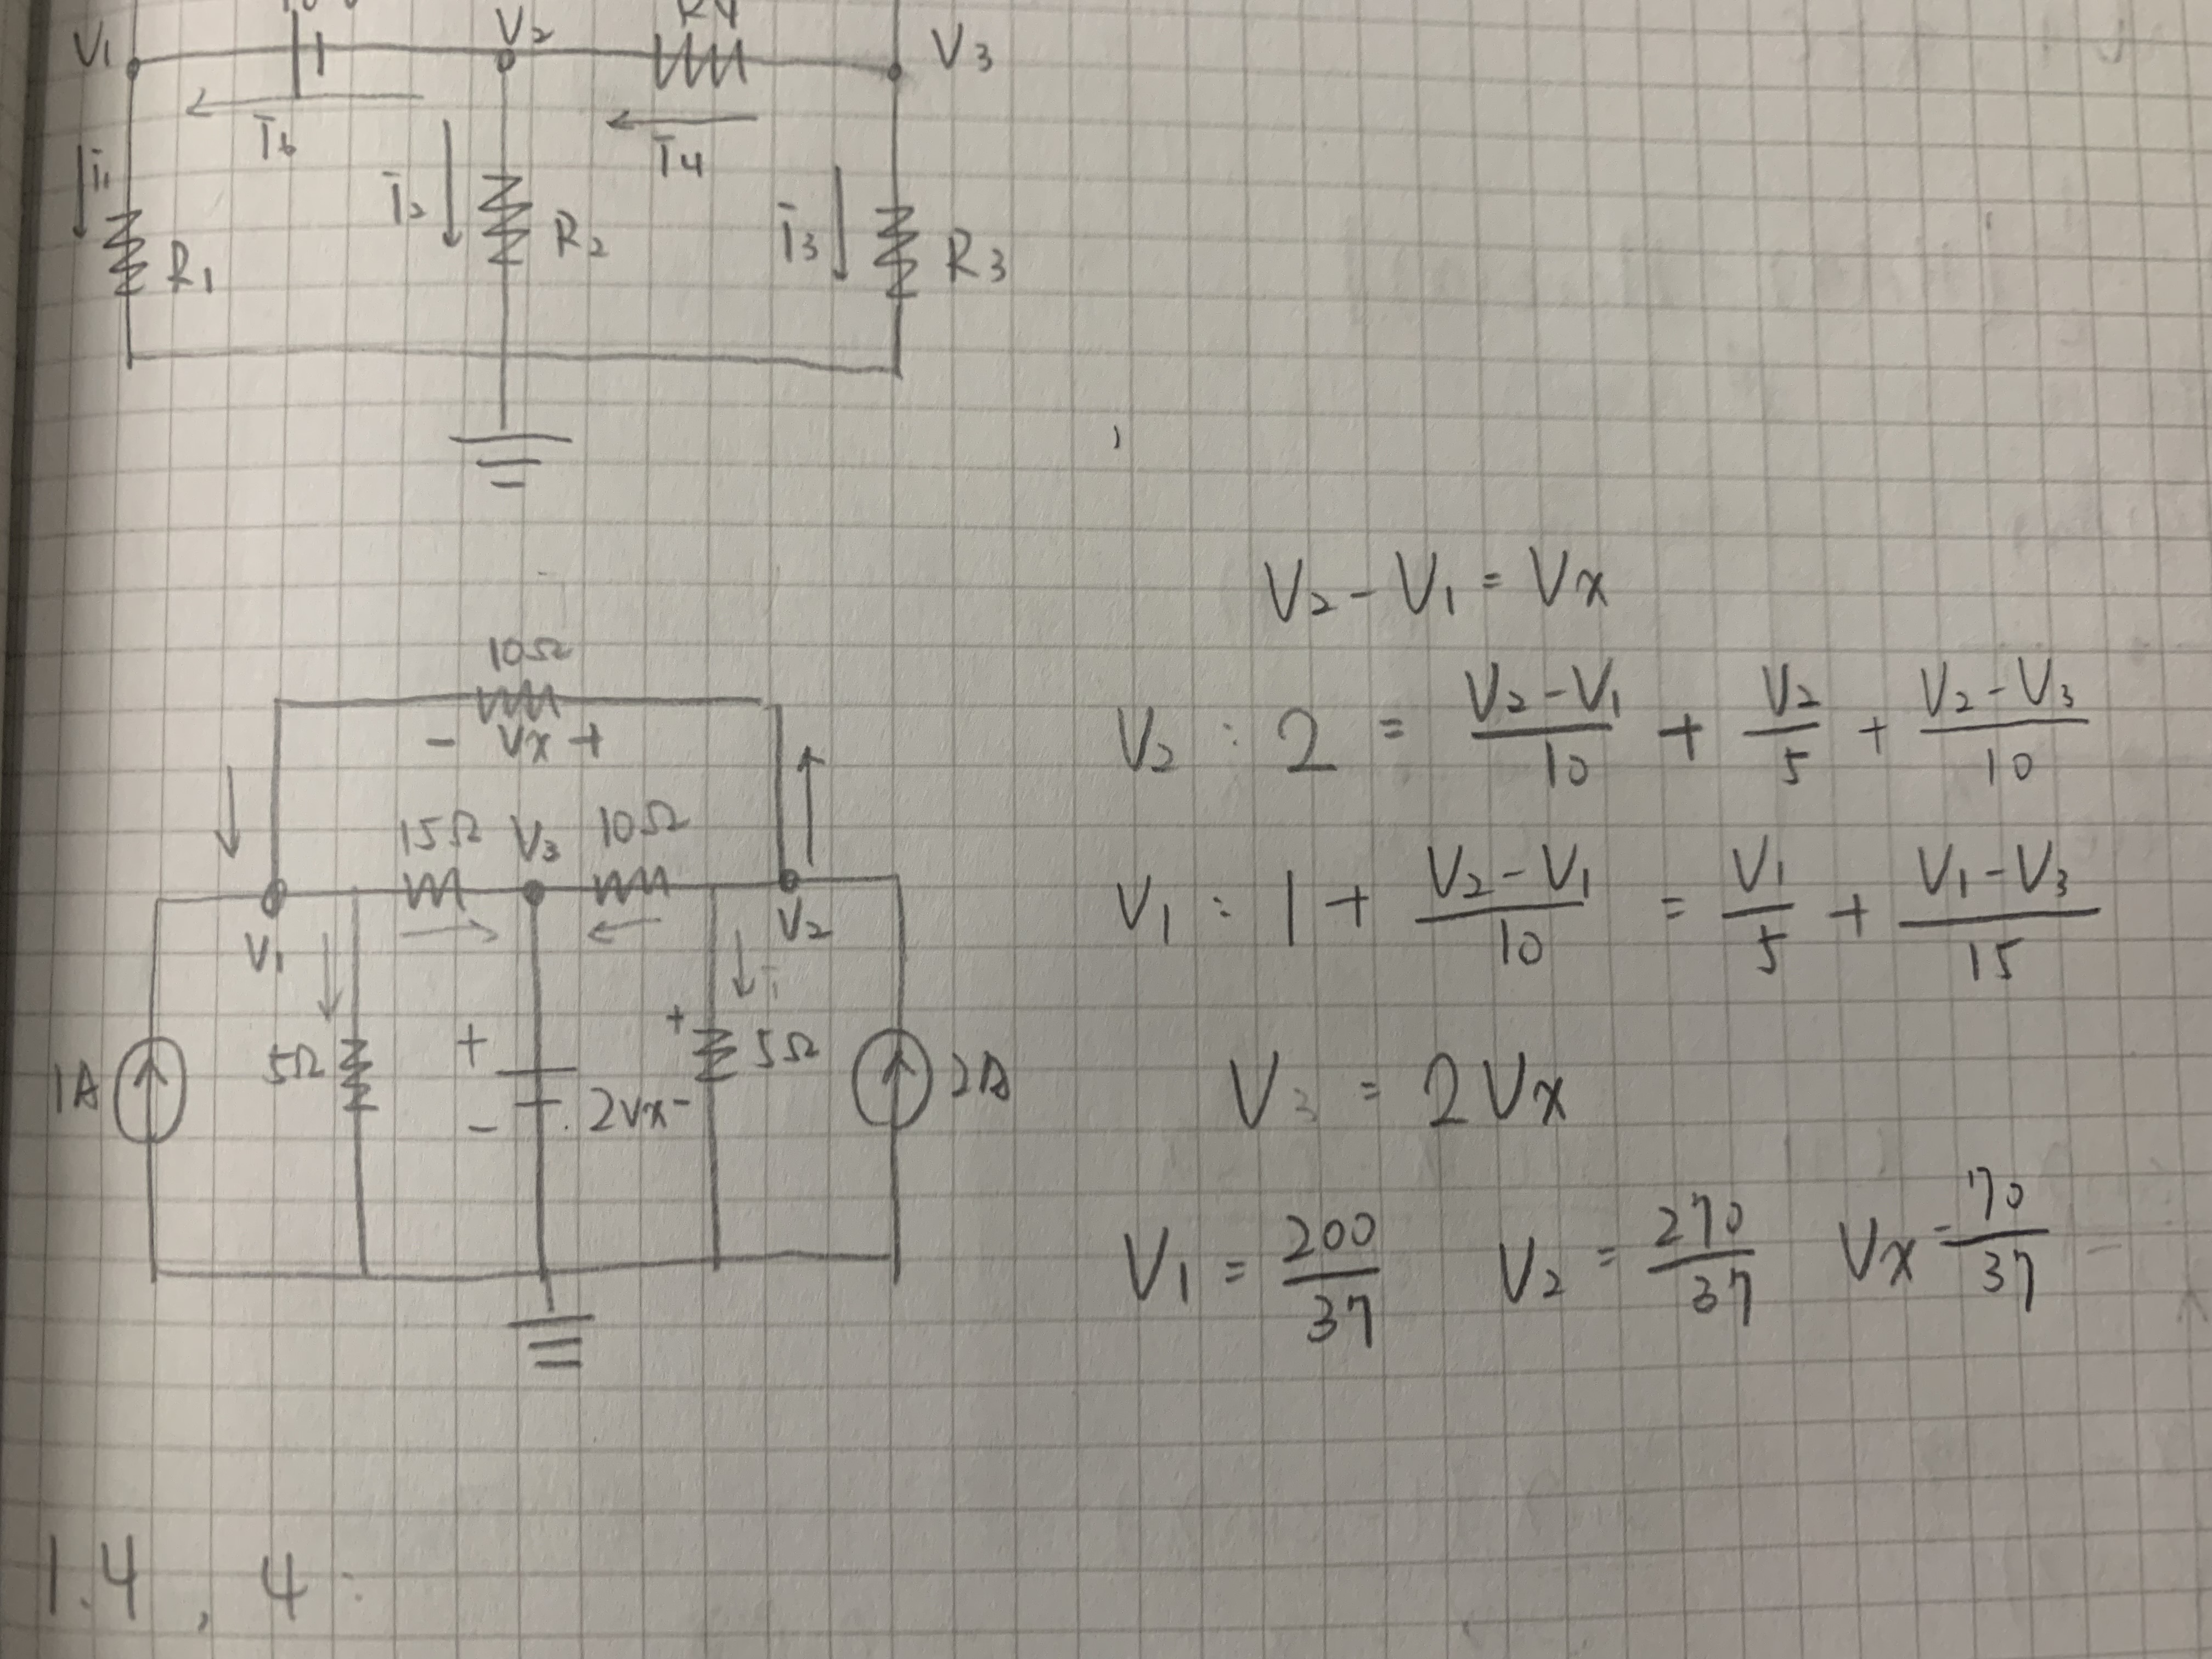 10
V1
V2
R4
V3
i5
i4
i1
R1
i2
R2
i3
R3
10Ω
- Vx +
15Ω
V3
10Ω
V1
V2
1A
5Ω
+
-
2Vx
+
-
5Ω
i
2A
V2 - V1 = Vx
V2 : 2 = (V2 - V1)/10 + V2/5 + (V2 - V3)/10
V1 : 1 + (V2 - V1)/10 = V1/5 + (V1 - V3)/15
V3 = 2Vx
V1 = 200/37 V2 = 270/37 Vx = 70/37
1.4, 4.